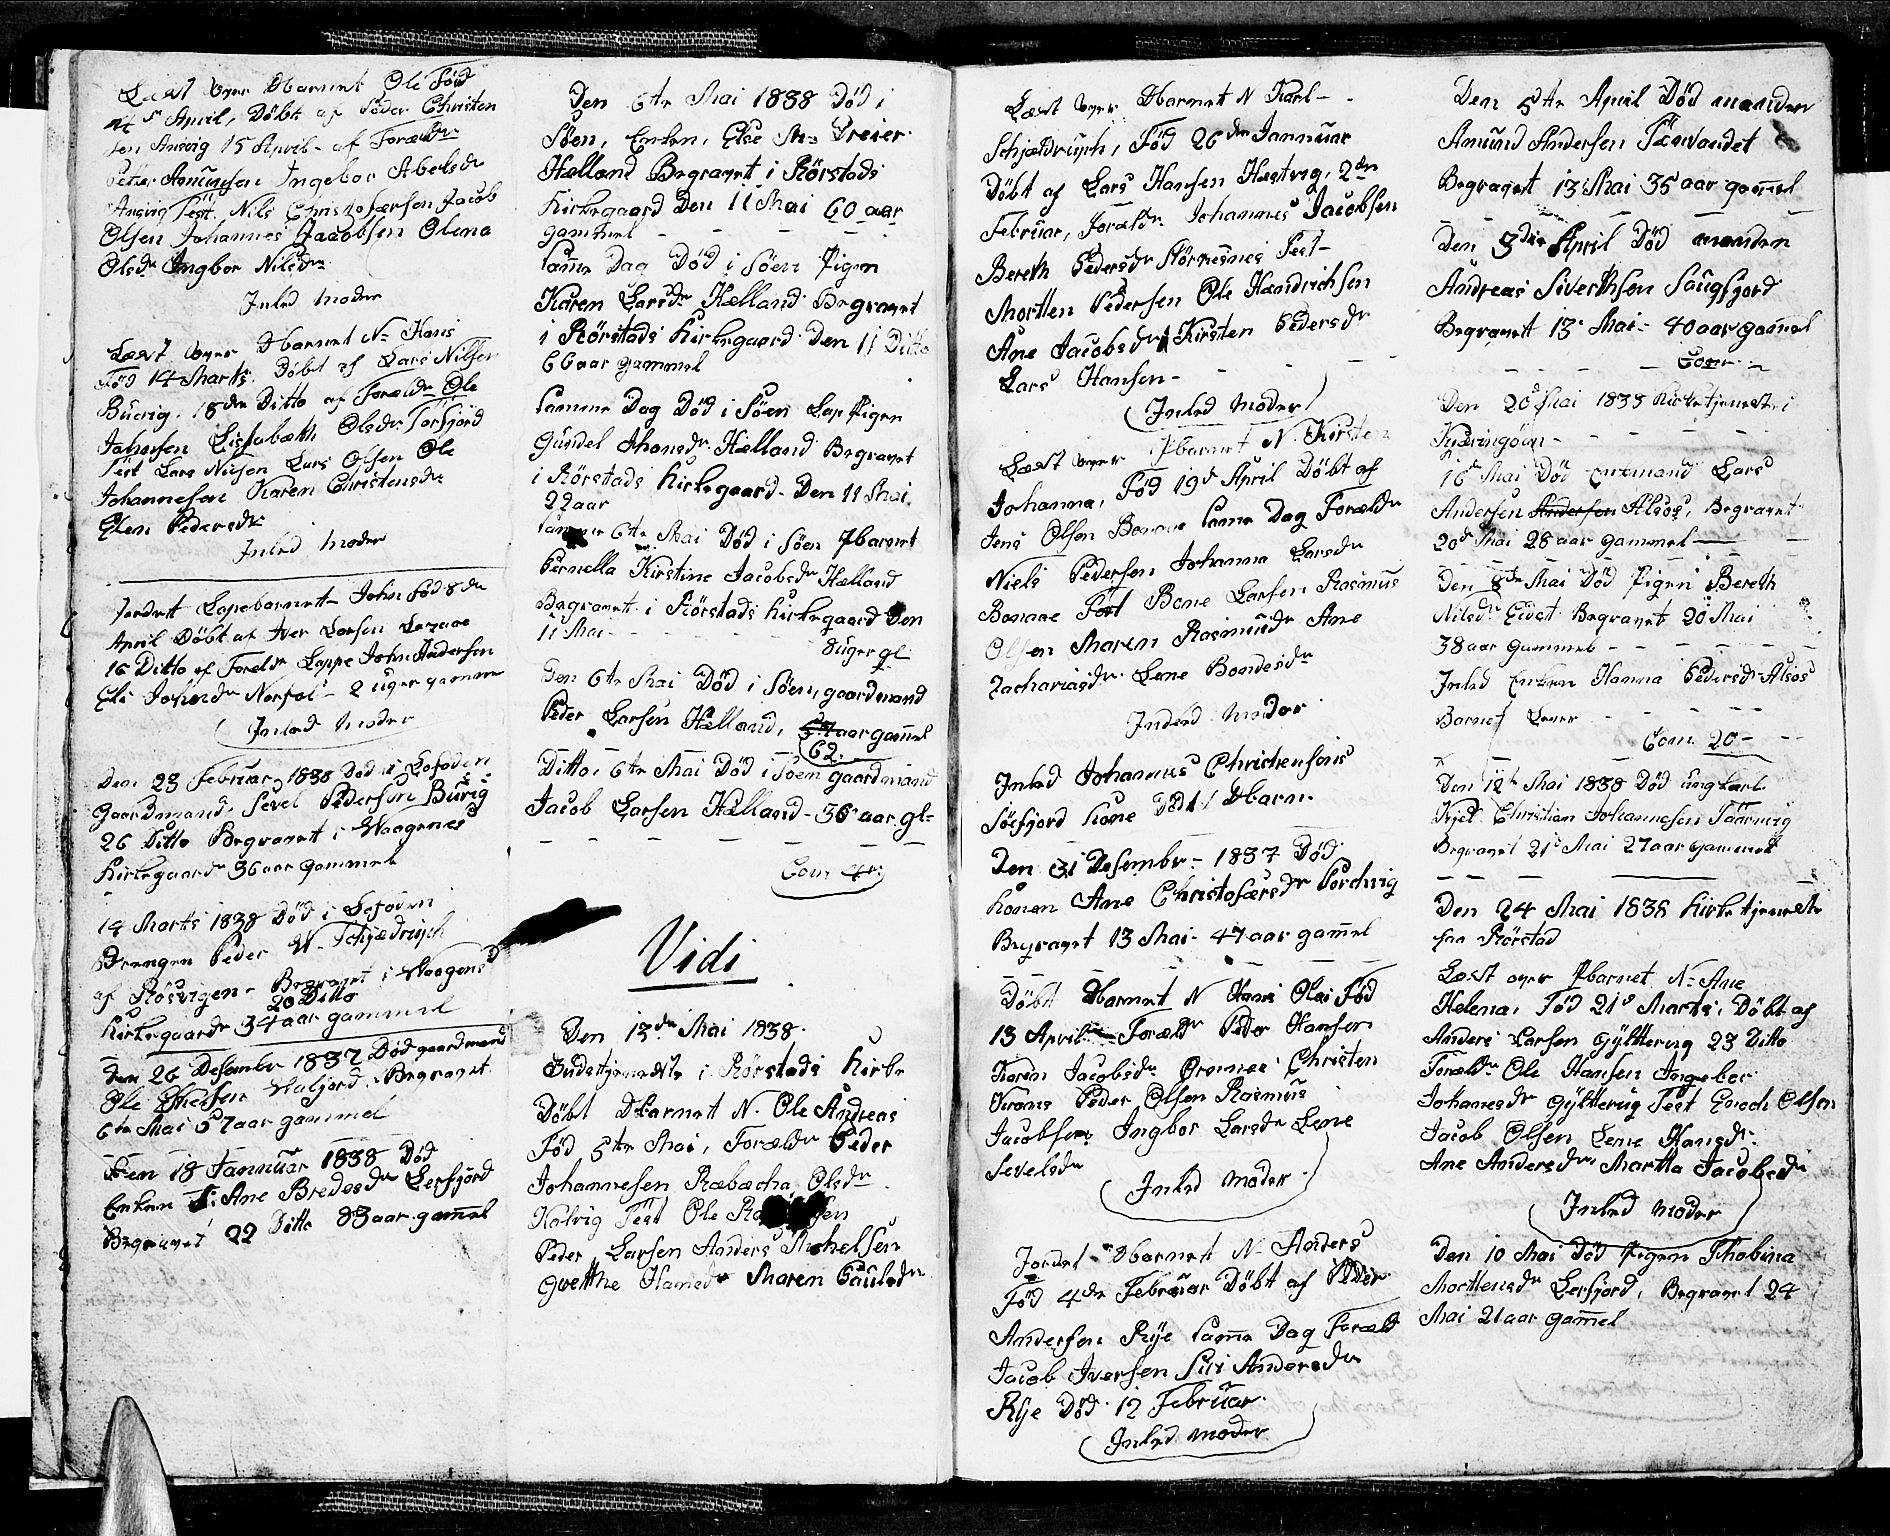 Læst over Dbarnet Ole Fød
5 April, Døbt af Peder Christen
sen Ansvig 15 April - af Forældr
Petter Amunsen Ingebor Abelsdr
Ansvig Test. Nils Christofærsen Jacob
Olsen Johannes Jacobsen Olena
Olsdr Ingbor Nilsdr
Inled Moder
Læst over Dbarnet N. Hans
Fød 14 Marts. Døbt af Lars Nilsen
Buvig. 18de Ditto af Forældr Ole
Johnsen Lissabæth Olsdr Torfjord
Test Lars Nilsen Lars Olsen Ole
Johannesen Karen Christensdr
Elen Pedersdr
Inled Moder
Jordet Lapebarnet John fød 8de
April Døbt af Iver Larsen
16 Ditto af Foreldr Lappe John Andersen
Eli Johnsdr 2 uger gammel
Inled Moder
Den 23 Februar 1838 Død i Lofoden
Gaardmand Sevel Pedersen Buvig
26 Ditto Begravet i Waagenes
Kirkegaard 36 aar gammel
14 Marts 1838 Død i Lofoden
Drengen Peder W. Schjædrup
af Røsvigen - Begravet i Waagens
20 Ditto
Kirkegaard 34 aar gammel
Den 26 Desember 1837 Død gaardmand
Ole Valjord. Begravet
6te Mai 57 aar gammel
Den 18 Jannuar 1838 Død
Enken Ane Bredesdr Lersfjord
Begravet 22 Ditto 83 aar gammel
Den 6te Mai 1838 Død i
Søen, Enken, Else M. Dreier
Hælland Begravet i Rørstads
Kirkegaard Den 11 Mai 60 aar
gammel
samme Dag Død i Søen Pigen
Karen Larsdr Hælland Begravet
i Rørstads Kirkegaard Den 11 Ditto
66 aar gammel
samme Dag Død i Søen Lap Pigen
Gundel Thomsdr Hælland Begravet
i Rørstads Kirkegaard. Den 11 Mai.
22 aar
samme 6te Mai Død i Søen Pbarnet
Pernella Kirstine Jacobsdr Hælland
Begravet i Rørstads Kirkegaard Den
11 Mai
8 uger gl:
Den 6te Mai Død i Søen, gaardmand
Peder Larsen Hælland, 57 aar gamel
62.
Ditto. 6te Mai Død i Søen gaardmand
Jacob Larsen Hælland - 36 aar gl=
Com 4r
Vidi
Den 13de Mai 1838.
Gudstjenneste i Rørstads Kirke
Døbt Dbarnet N. Ole Andreas
Fød 5te Mai, Forældr Peder
Johannesen Ræbæcha Olsdr
Kalvig Test Ole
Peder Larsen Anders Michelsen
Grethe Hansdr Maren Paulsdr
Læst over Dbarnet N Karl
Schjældruph, Fød 26de Jannuar
Døbt af Lars Hansen Hestvig, 2den
Februar, Forældr Johannes Jacobsen
Bereth Pedersdr Størnesnes Test
Mortten Pedersen Ole Hændrichsen
Ane Jacobsdr Kirsten Pedersdr
Lars Hansen
Inled Moder
Læst over Pbarnet N. Kirsten
Johanna, Fød 19d April Døbt af
Jens Olsen Bonaae samme Dag Forældr
Niels Pedersen Johanna Larsdr
Bonaae Test Bone Larsen Rasmus
Olsen Maren Rasmusdr Ane
Zachariasdr Lene Bondesdr
Indled Moder
Inled Johannes Christensens
Søefjord Kone Død Dbarn.
Den 31 Desember 1837 Død
Konen Ane Christofærsdr Tordvig
Begravet 13 Mai 47 aar gamel
Døbt Dbarnet N Hans Olai Fød
13 April Forældr Peder Hansen
Karen Jacobsdr Christen
Peder Olsen Rasmus
Jacobsen Ingbor Larsdr Lene
Sevelsdr
Inled Moder
Jordet Dbarnet N. Anders
Fød 4de Februar Døbt af Peder
Andersen Rye samme Dag Foræld
Jacob Iversen Siri Andersdr
Rye Død 12 Februar
Inled Moder
Den 5te April Død manden
Amund Andersen Tærvandet
Begravet 13 Mai 35 aar gamel
Den 3die April Død manden
Andreas Siverthsen Laugsjord
Begravet 13 Mai 40 aar gamel
Com
Den 20 Mai 1838 Kirketjeneste i
Kjerringøen
16 Mai Død Enkmand Lars
Andersen Andersen Alsos, Begravet
20d Mai 28 aar gammel
Den 8de Mai Død Pigen Bereth
Nilsdr Eidet Begravet 20 Mai
38 aar gammel
Inled Enken Hanna Pedersdr Alsos
Barnet Lever
Com 20
Den 12te Mai 1838 Død ungkarl
Christian Johannesen Taarnvig
Begravet 21 Mai 27 aar gammel
Den 24 Mai 1838 Kirketjeneste
paa Rørstad
Læst over Pbarnet N. Ane
Helena, Fød 21 Marts, Døbt af
Anders Larsen Gylttervig 23 Ditto
Forældr Ole Hansen Ingebor
Johanesdr Gyltterviig Test Enoch Olsen
Jacob Olsen Lene Hansdr
Ane Andersdr Martha Jacobsdr
Inled Moder
Den 10 Mai Død Pigen Thobina
Morttensdr Lersfjord, Begravet 24
Mai 21 aar gamel